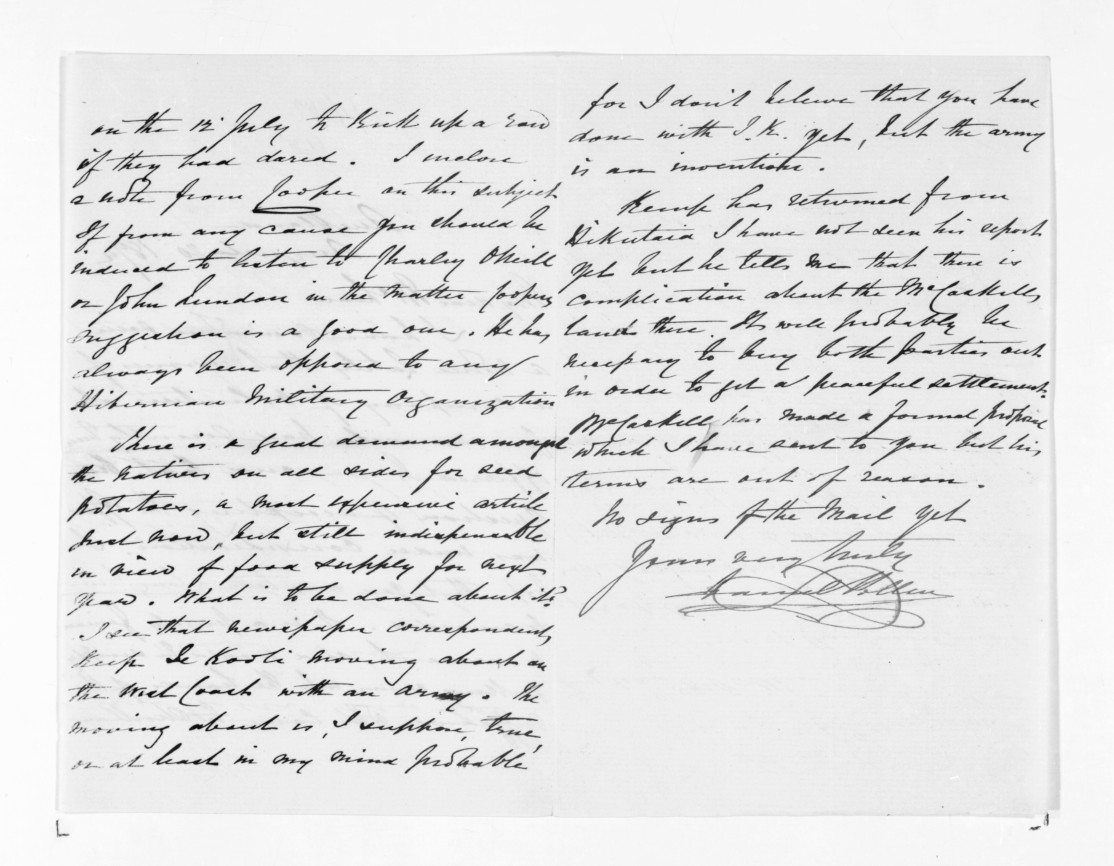 on the 12 July to kick up a row
if they had dared. I inclose
a note from Cooper on this subject
If from any cause you should be
induced to listen to Charley ONeill
or John Lundon in the matter Coopers
suggestion is a good one. He has
always been opposed to any
Hibernian Military Organization
There is a great demand amongst
the natives on all sides for seed
potatoes, a most expensive article
Just now, but still indispensable
in view of food supply for next
year. What is to be done about it?
I see that newspaper correspondents
keep Te Kooti moving about on
the West Coast with an army. The
moving about is, I suppose, true,
or at least in my mind probable
for I don't believe that you have
done with T.K. yet, but the army
is an invention.
Kemp has returned from
Hikutaia I have not seen his report
yet but he tells me that there is
complication about the McCaskills
land there. It will probably be
necessary to buy both parties out
in order to get a peaceful settlement.
McCaskill has made a formal proposal
which I have sent to you but his
terms are out of reason.
No signs of the Mail yet
Yours very truly
Daniel Pollen